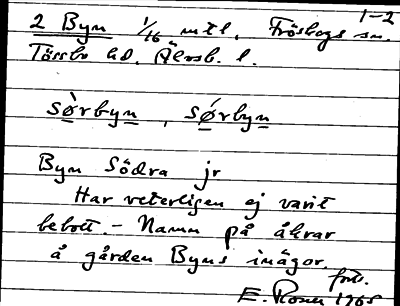 1-2
2 Byn 1/16 mtl. Fröskogs sn.
Tössbo hd. Älvsb. l.
sòrbyn, sórbyn
Byn Södra jr
Har veterligen ej varit
bebott. - Namn på åkrar
å gården Byns inägor.
forts.
E. Rosen 1965